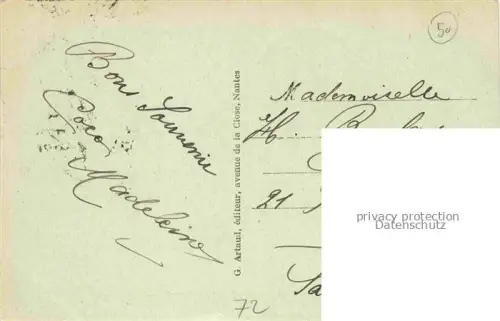 Bons Souvenir
Coco
Madeleine
G. Artaud, éditeur, avenue de la Close, Nantes
Mademoiselle
H.
21
50
72
privacy protection
Datenschutz